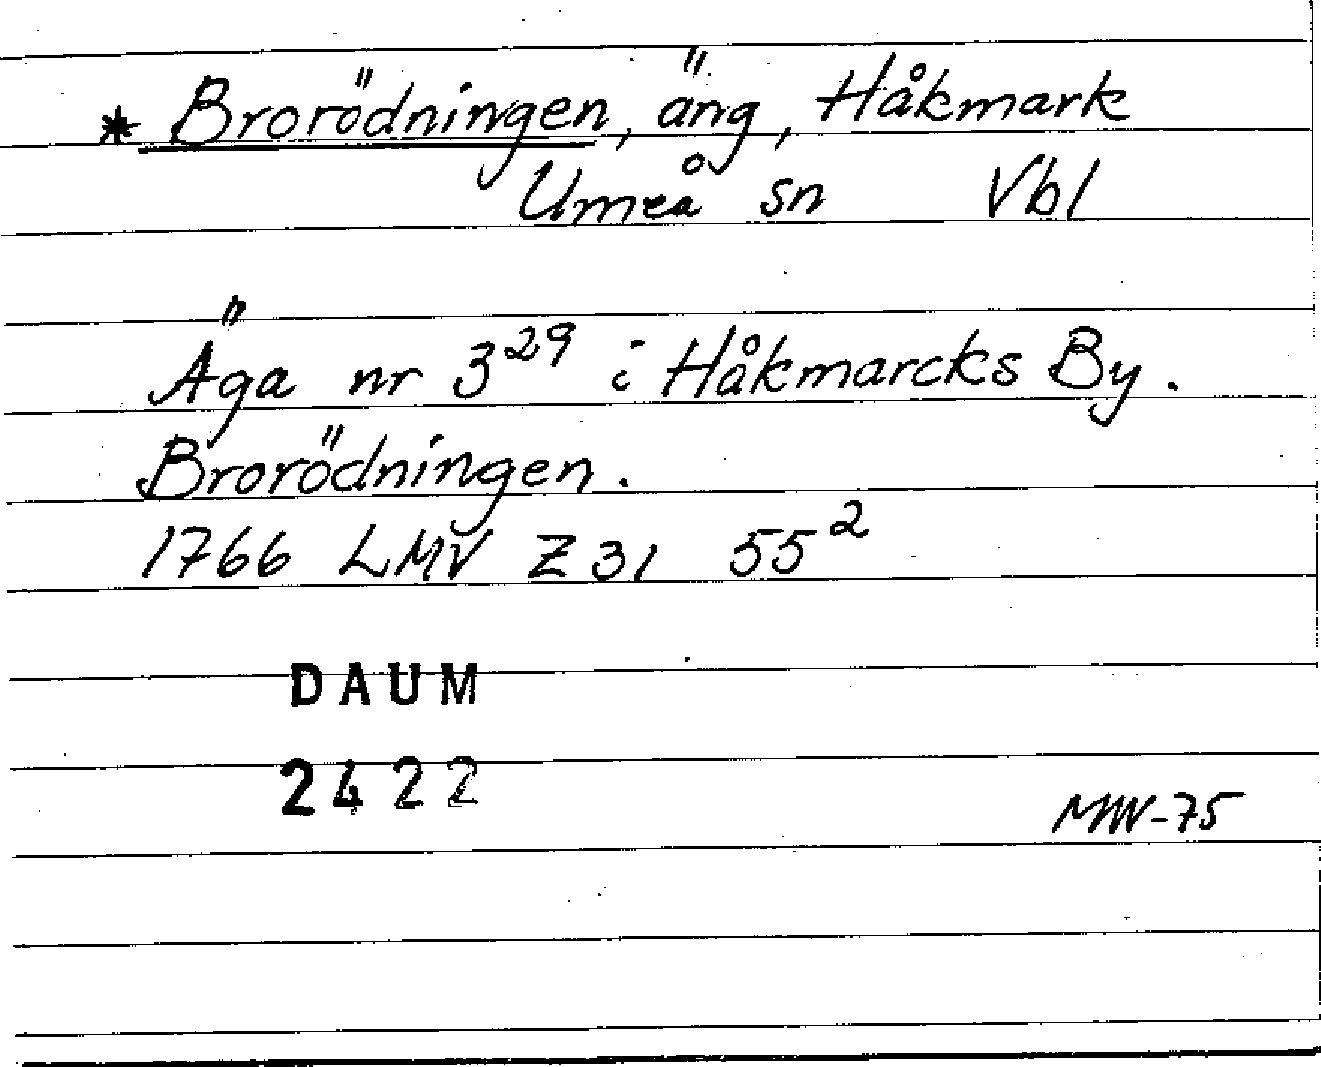 * Brorödningen, äng, Håkmark
Umeå sn Vbl
Äga nr 3²⁹ i Håkmarcks By.
Brorödningen.
1766 LMV Z 31 55²
DAUM
2422
MW-75